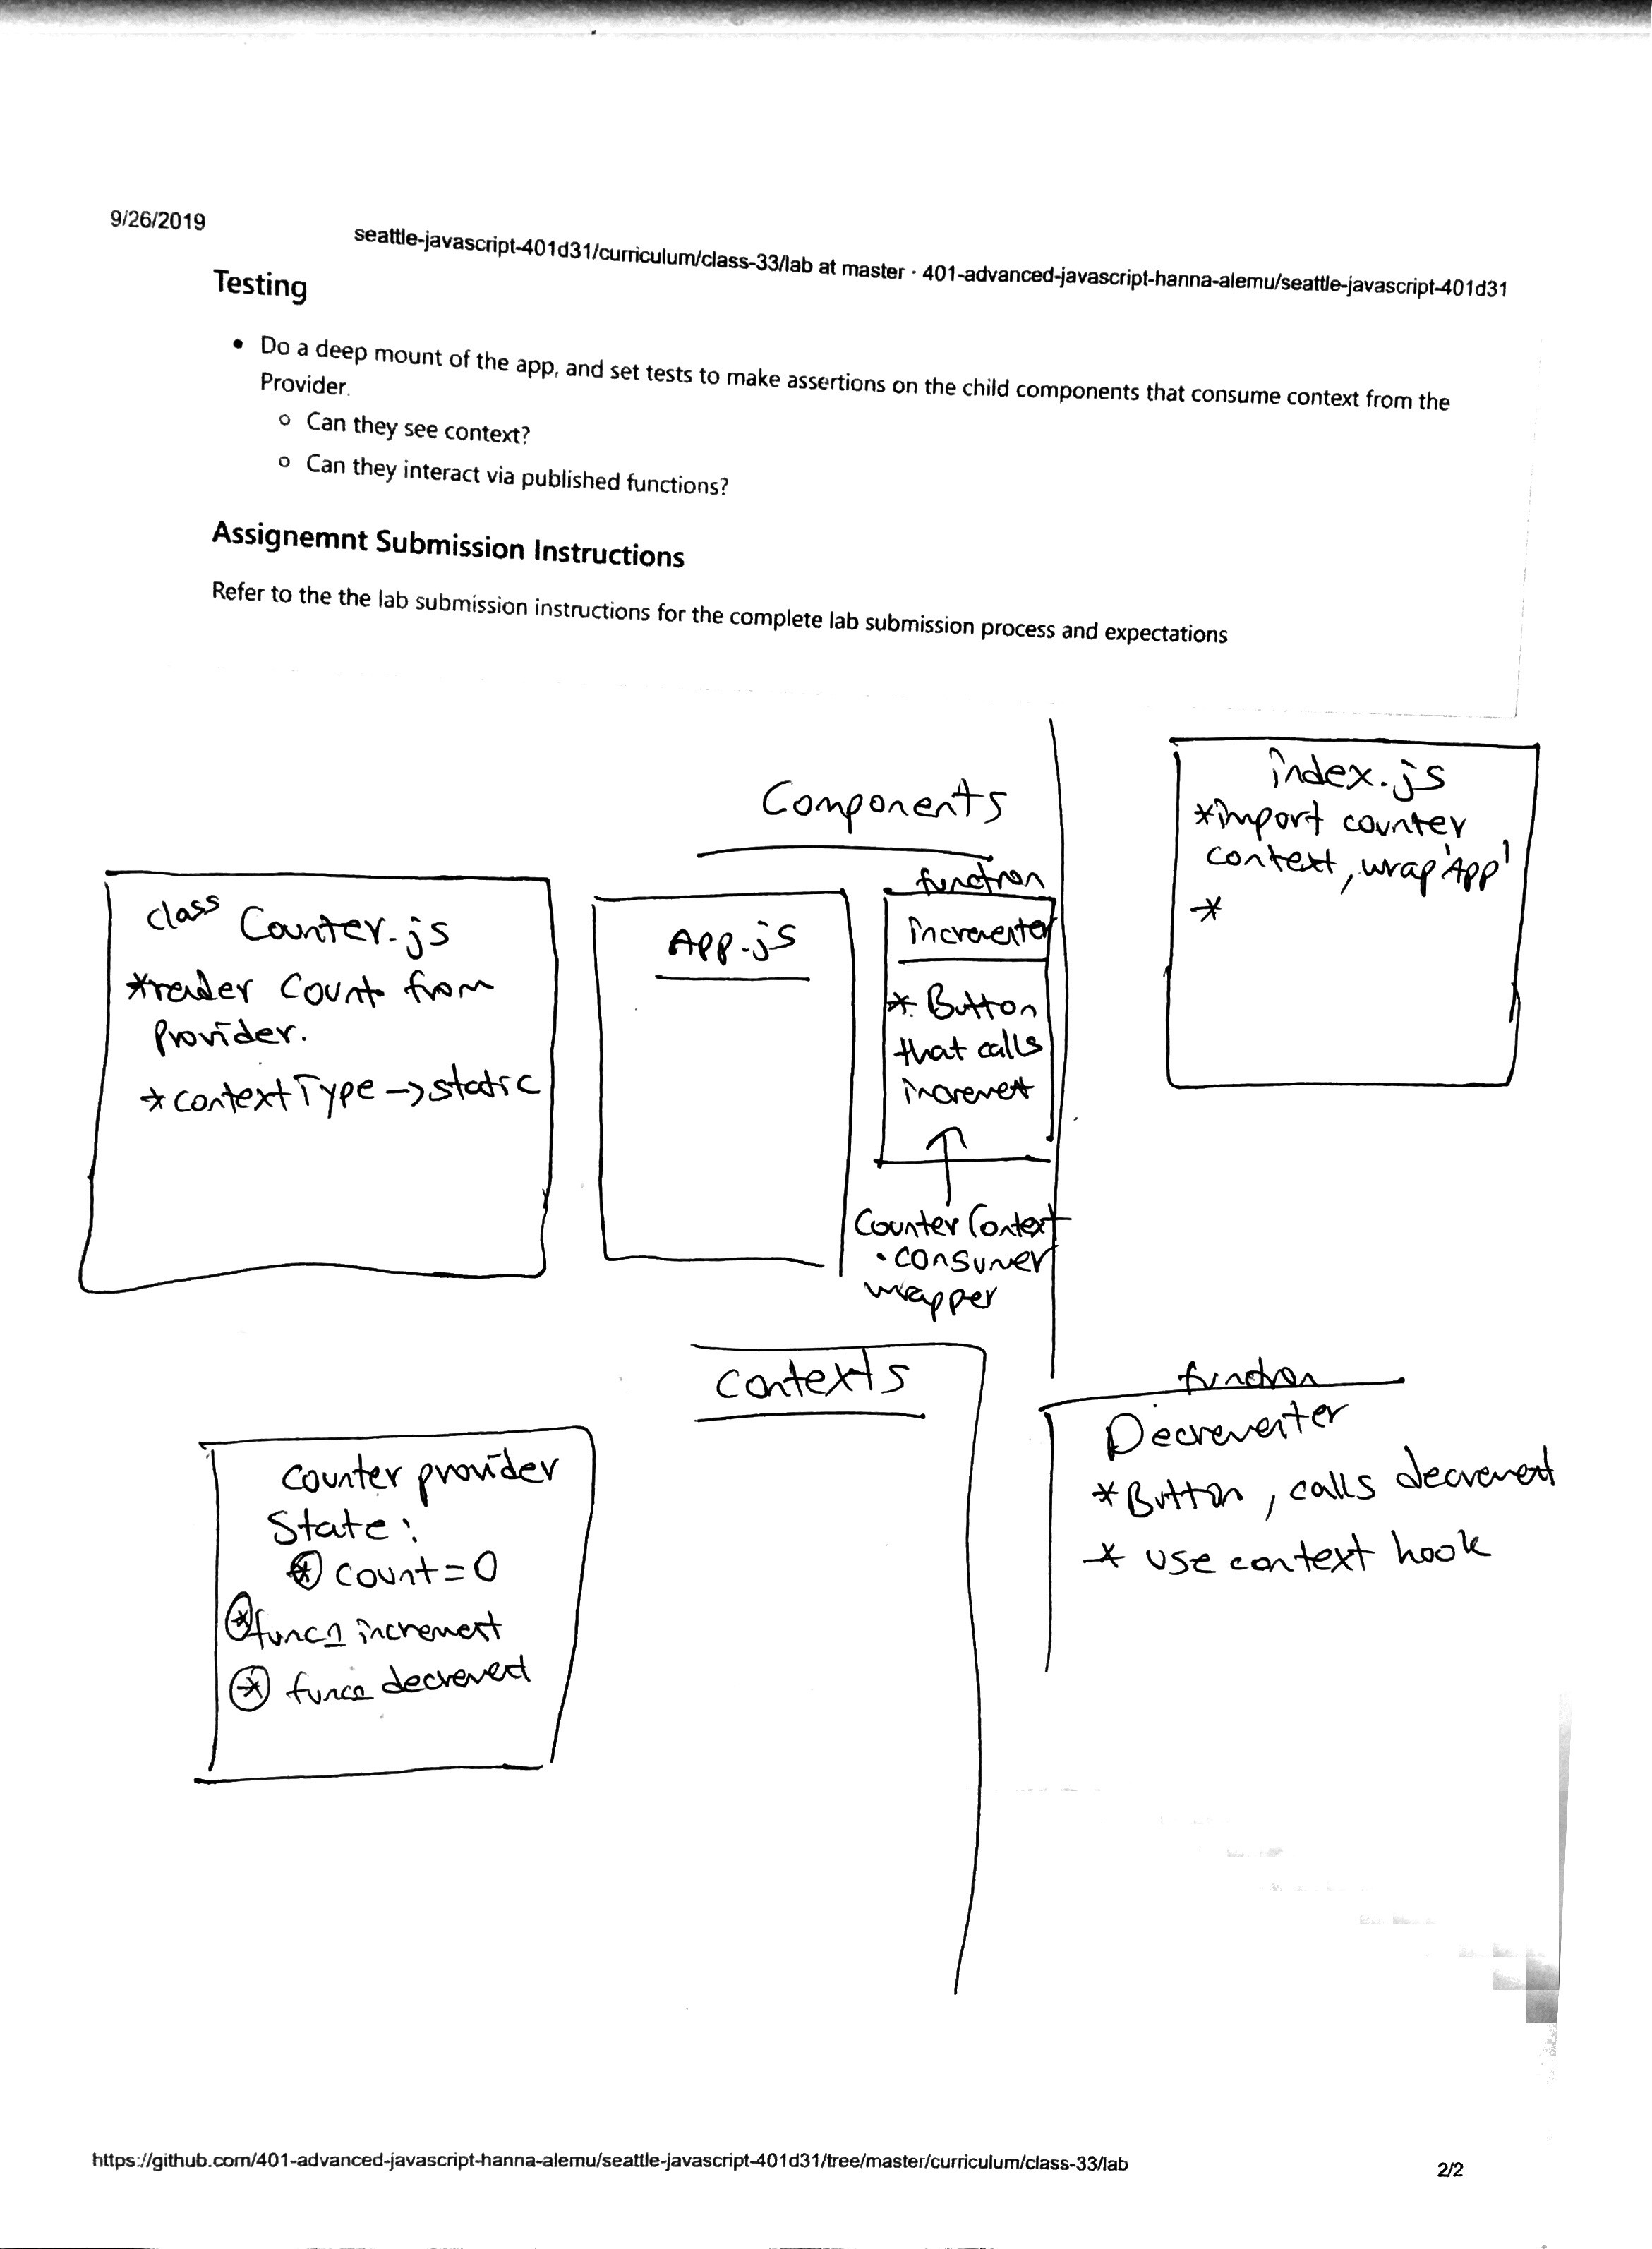 9/26/2019
seattle-javascript-401d31/curriculum/class-33/lab at master · 401-advanced-javascript-hanna-alemu/seattle-javascript-401d31
Testing
• Do a deep mount of the app, and set tests to make assertions on the child components that consume context from the
Provider.
○ Can they see context?
○ Can they interact via published functions?
Assignemnt Submission Instructions
Refer to the the lab submission instructions for the complete lab submission process and expectations
Components
class Counter.js
*render Count from
Provider.
*contextType → static
App.js
function
incrementer
* Button
that calls
increment
Counter Context
.consumer
wrapper
index.js
*import counter
context, wrap 'App'
*
contexts
counter provider
State:
* count=0
* funcn increment
* funcn decrement
function
Decrementer
*Button, calls decrement
* use context hook
https://github.com/401-advanced-javascript-hanna-alemu/seattle-javascript-401d31/tree/master/curriculum/class-33/lab
2/2